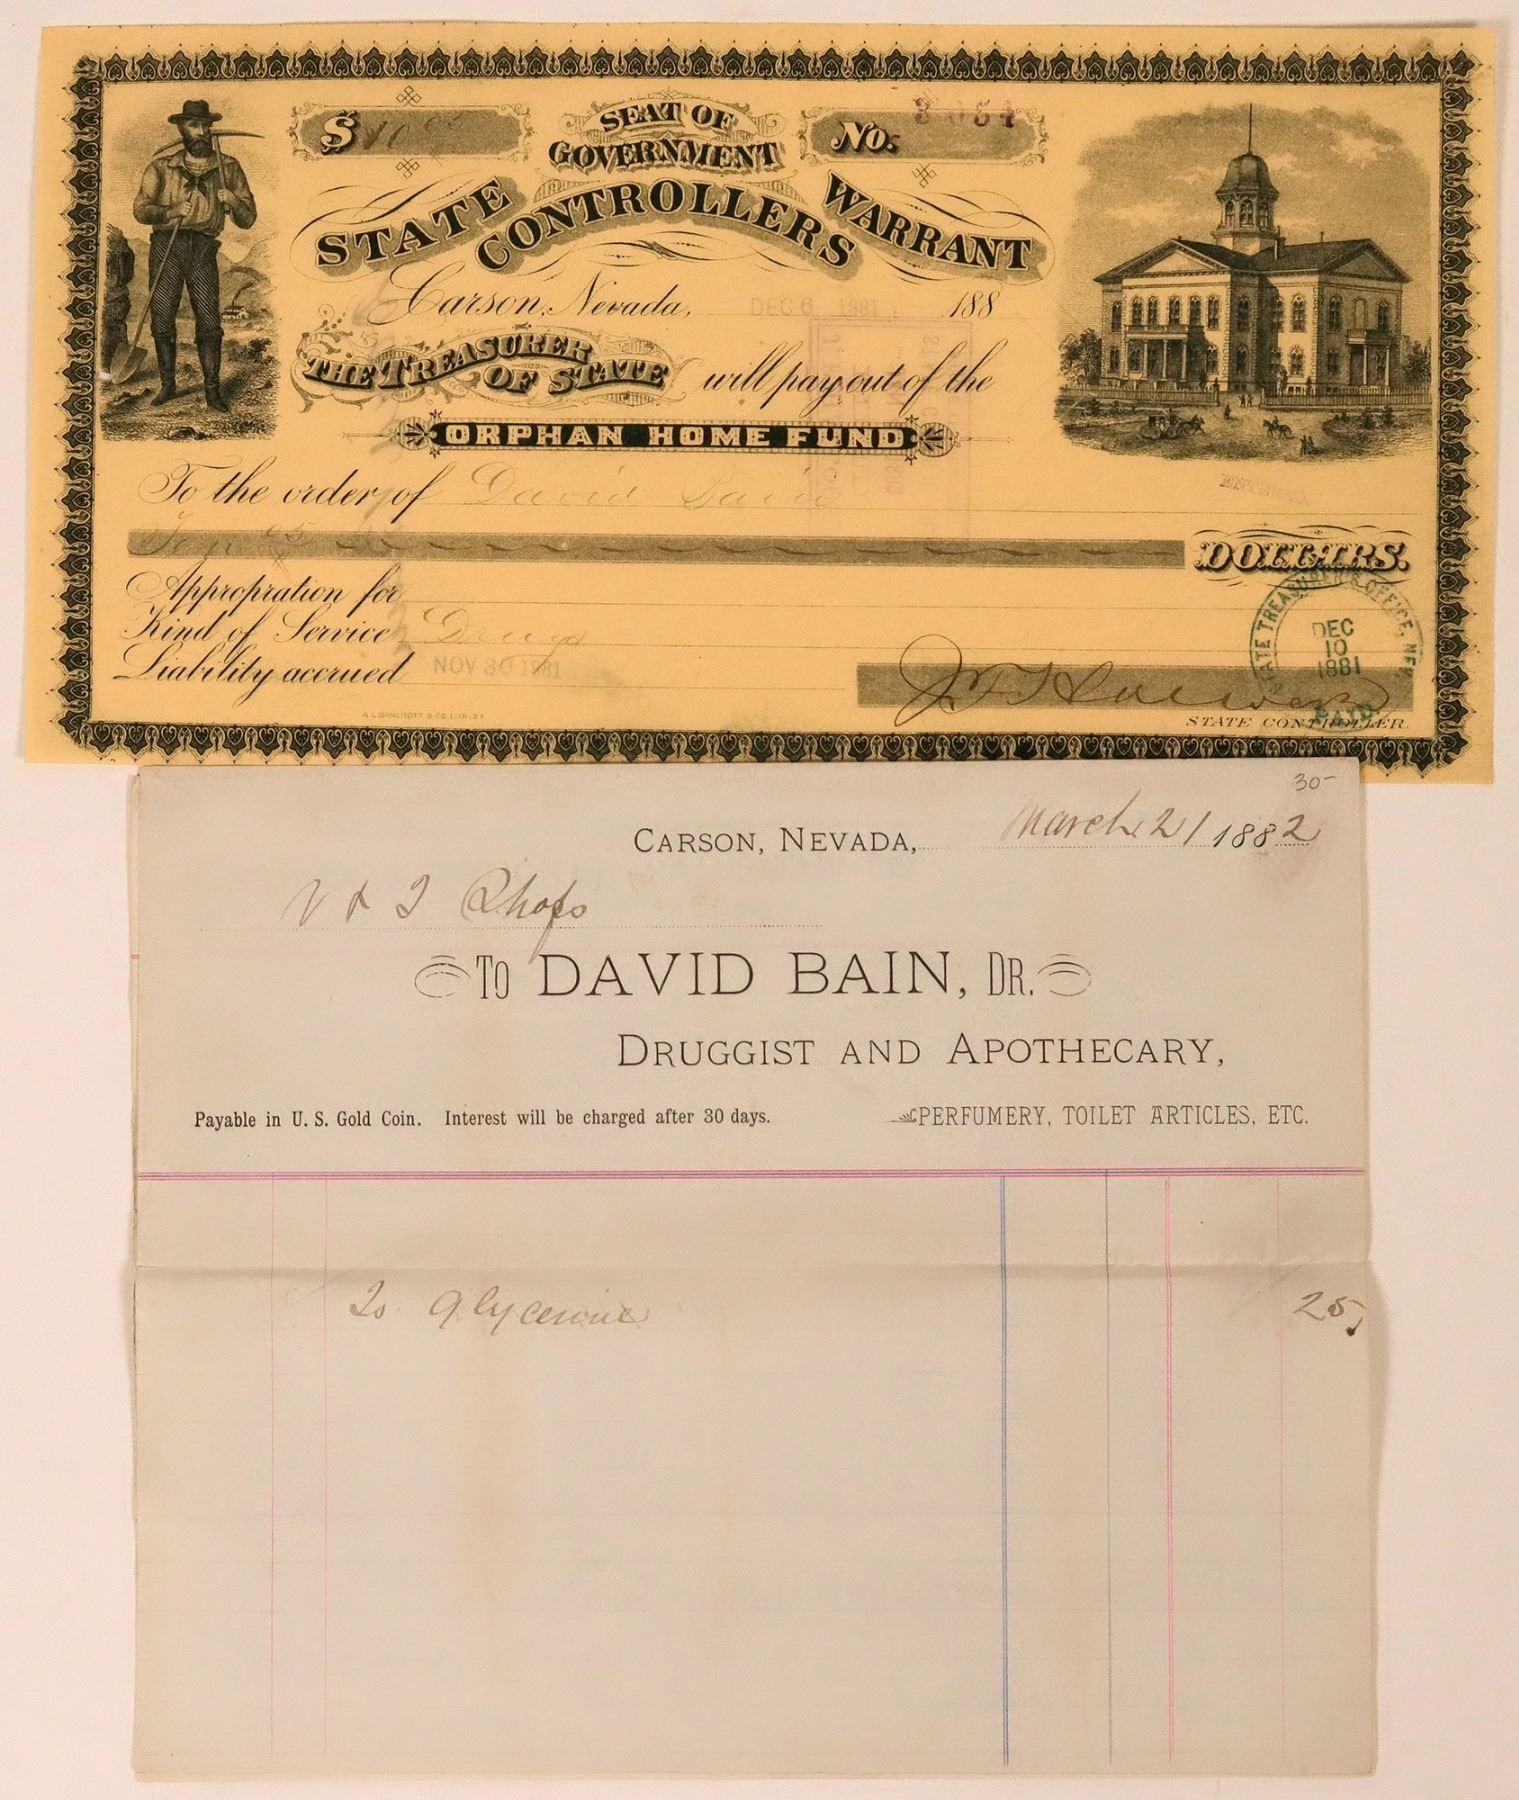 $ 10 05
SEAT OF GOVERNMENT
No. 3054
STATE CONTROLLERS WARRANT
Carson, Nevada, DEC 6 1881 188
THE TREASURER OF STATE will pay out of the
ORPHAN HOME FUND
To the order of David Bain
Ten 05 DOLLARS.
Appropration for
Kind of Service Drugs
Liability accrued NOV 30 1881
STATE TREASURER'S OFFICE, NEV.
DEC
10
1881
PAID
ENTERED
STATE CONTROLLER.
A.L. BANCROFT & CO. LITH. S.F.
30-
CARSON, NEVADA, March 21 1882
V & T Shops
TO DAVID BAIN, DR.
DRUGGIST AND APOTHECARY,
Payable in U. S. Gold Coin. Interest will be charged after 30 days. PERFUMERY, TOILET ARTICLES, ETC.
To Glycerine 25